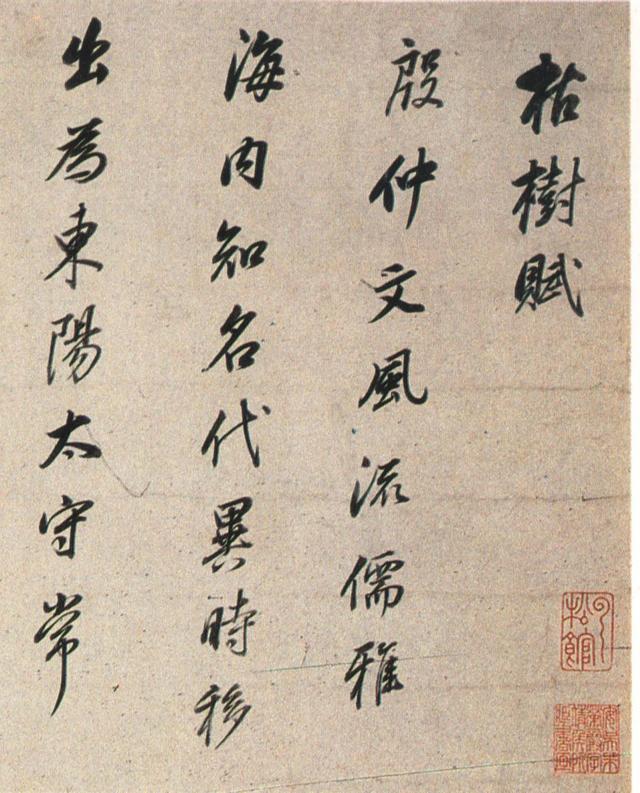 枯樹賦
殷仲文風流儒雅
海内知名代異時移
出為東陽太守常
松館